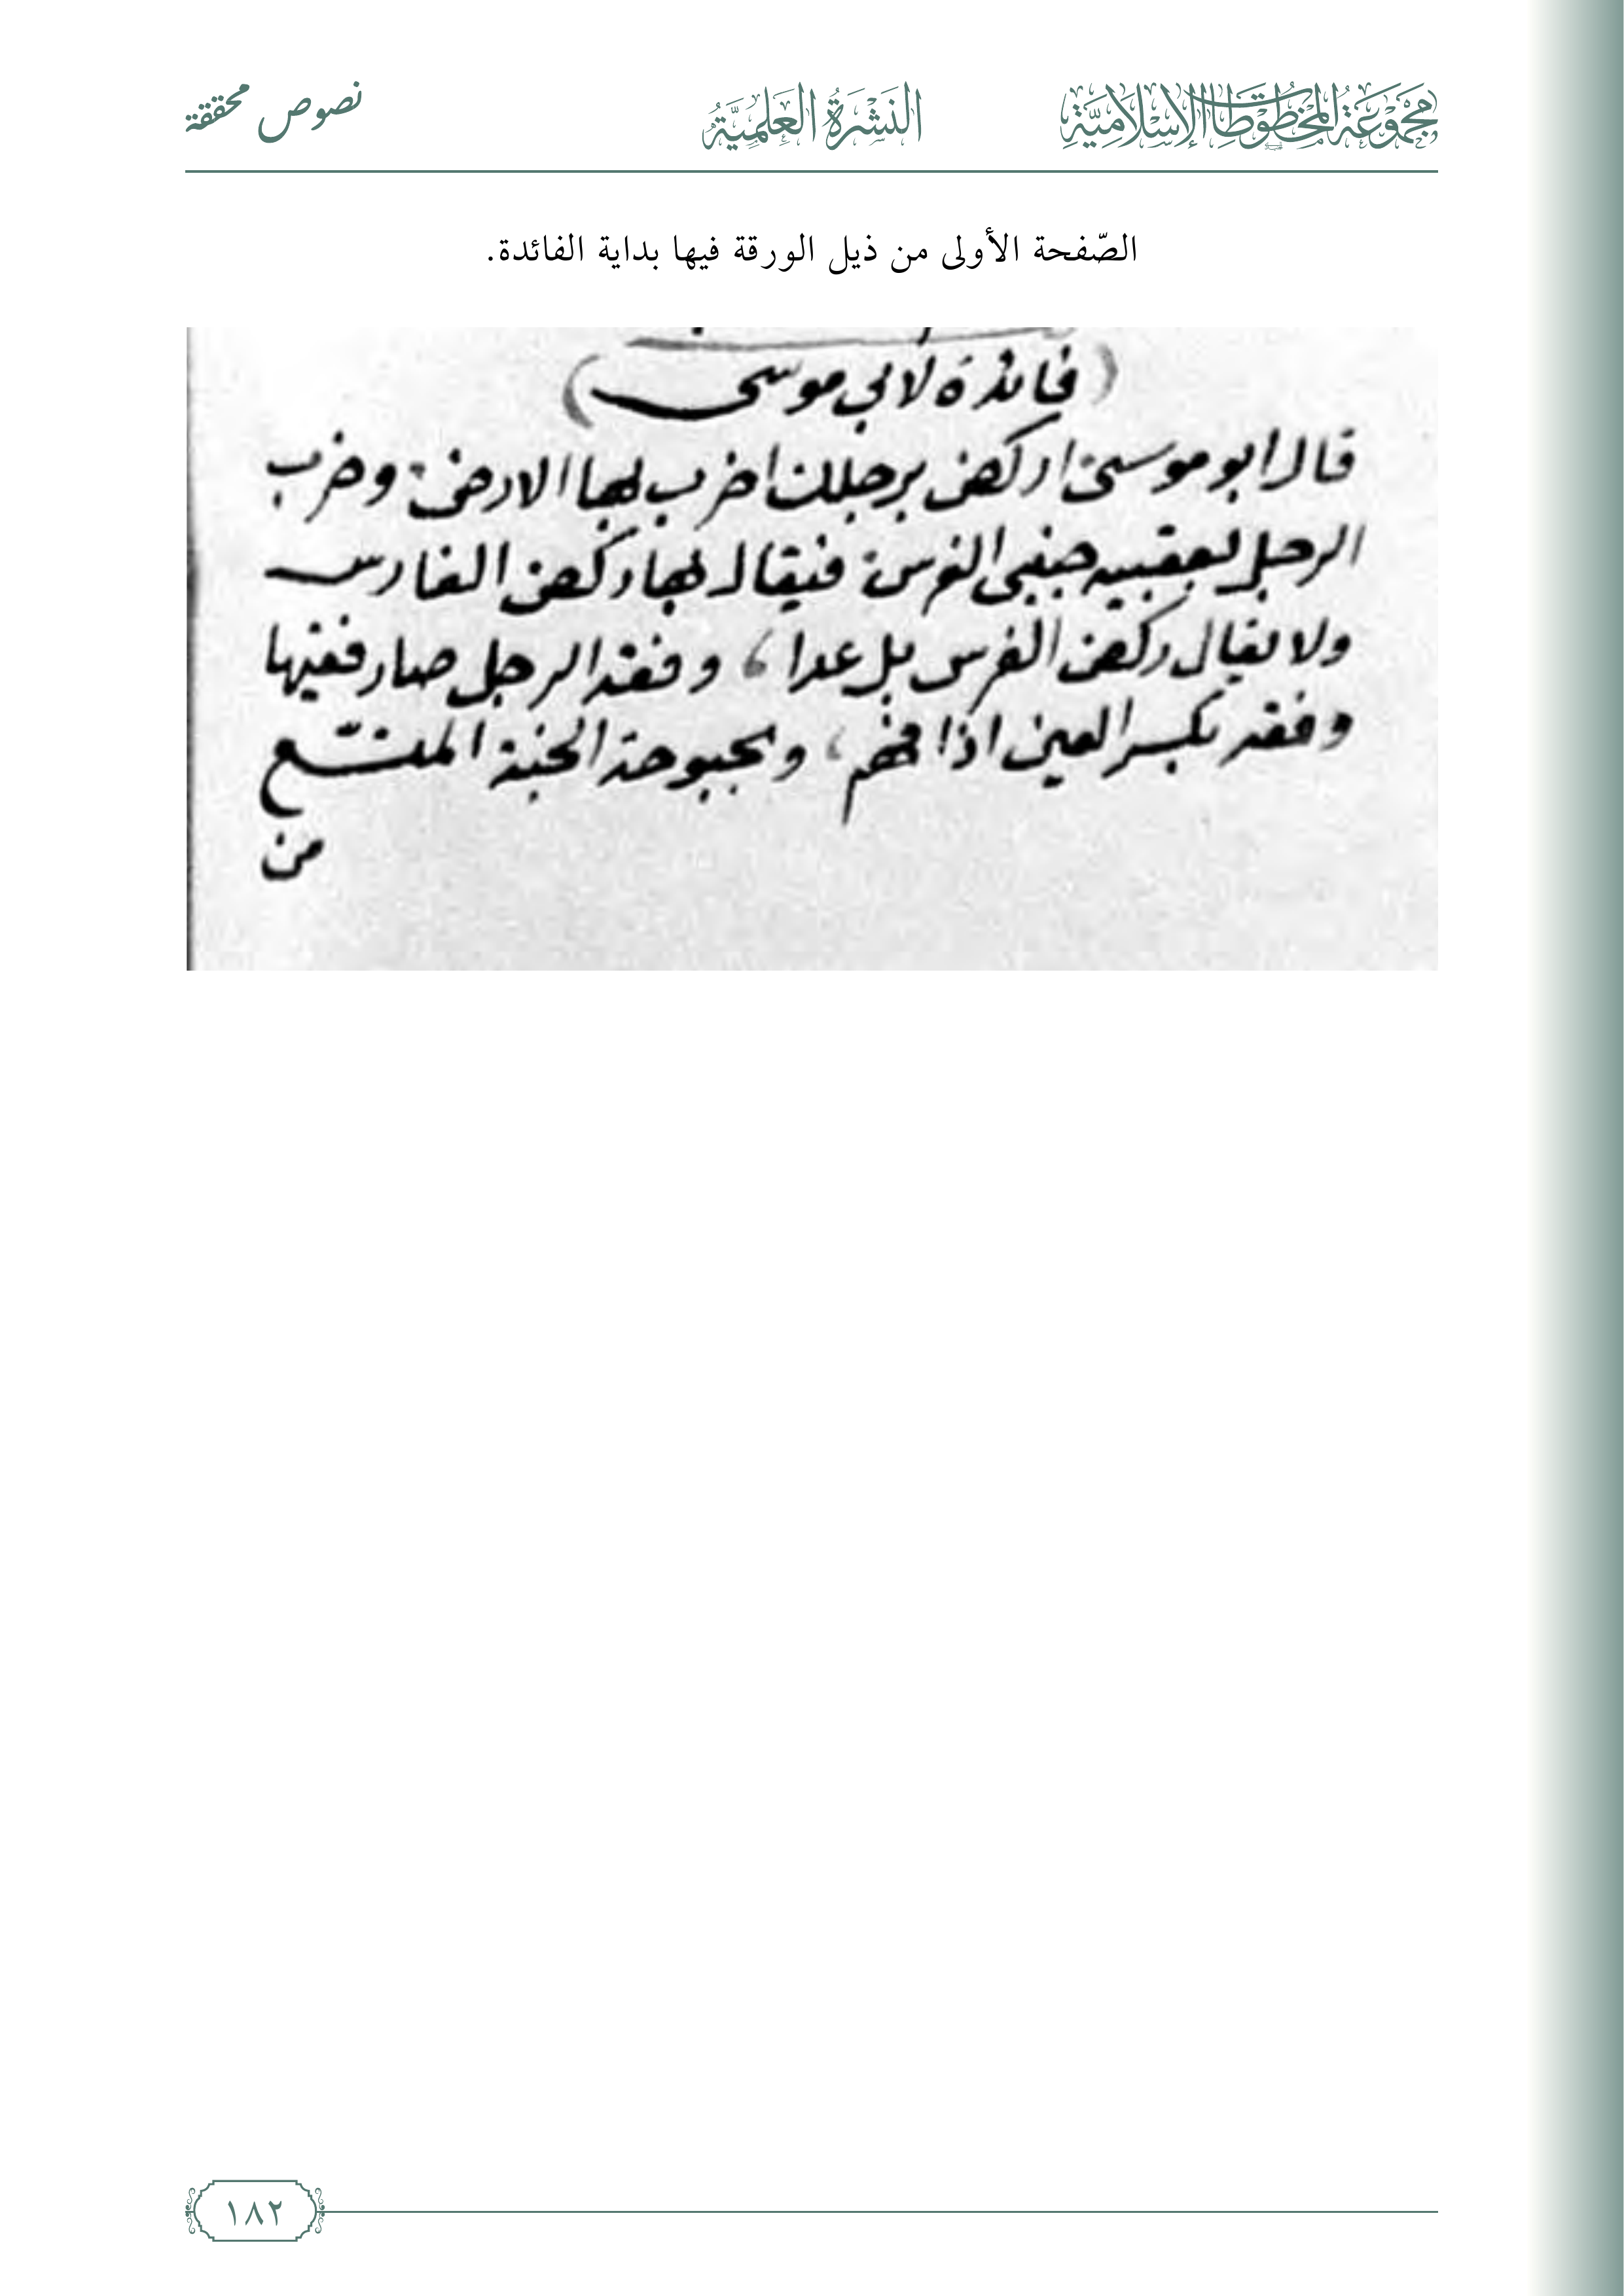 مجموعة المخطوطات الإسلامية
النشرة العلمية
نصوص محققة
الصّفحة الأولى من ذيل الورقة فيها بداية الفائدة.
(فائدة لابي موسى)
قال ابو موسى اركض برجلك اضرب بها الارض وضرب
الرجل بعقبيه جنبي الفرس فيقال لها ركض الفارس
ولا يقال ركض الفرس بل عدا، وفقه الرجل صار فقيها
وفقه بكسر العين اذا فهم، وبحبوحة الجنة المتسع
من
١٨٢